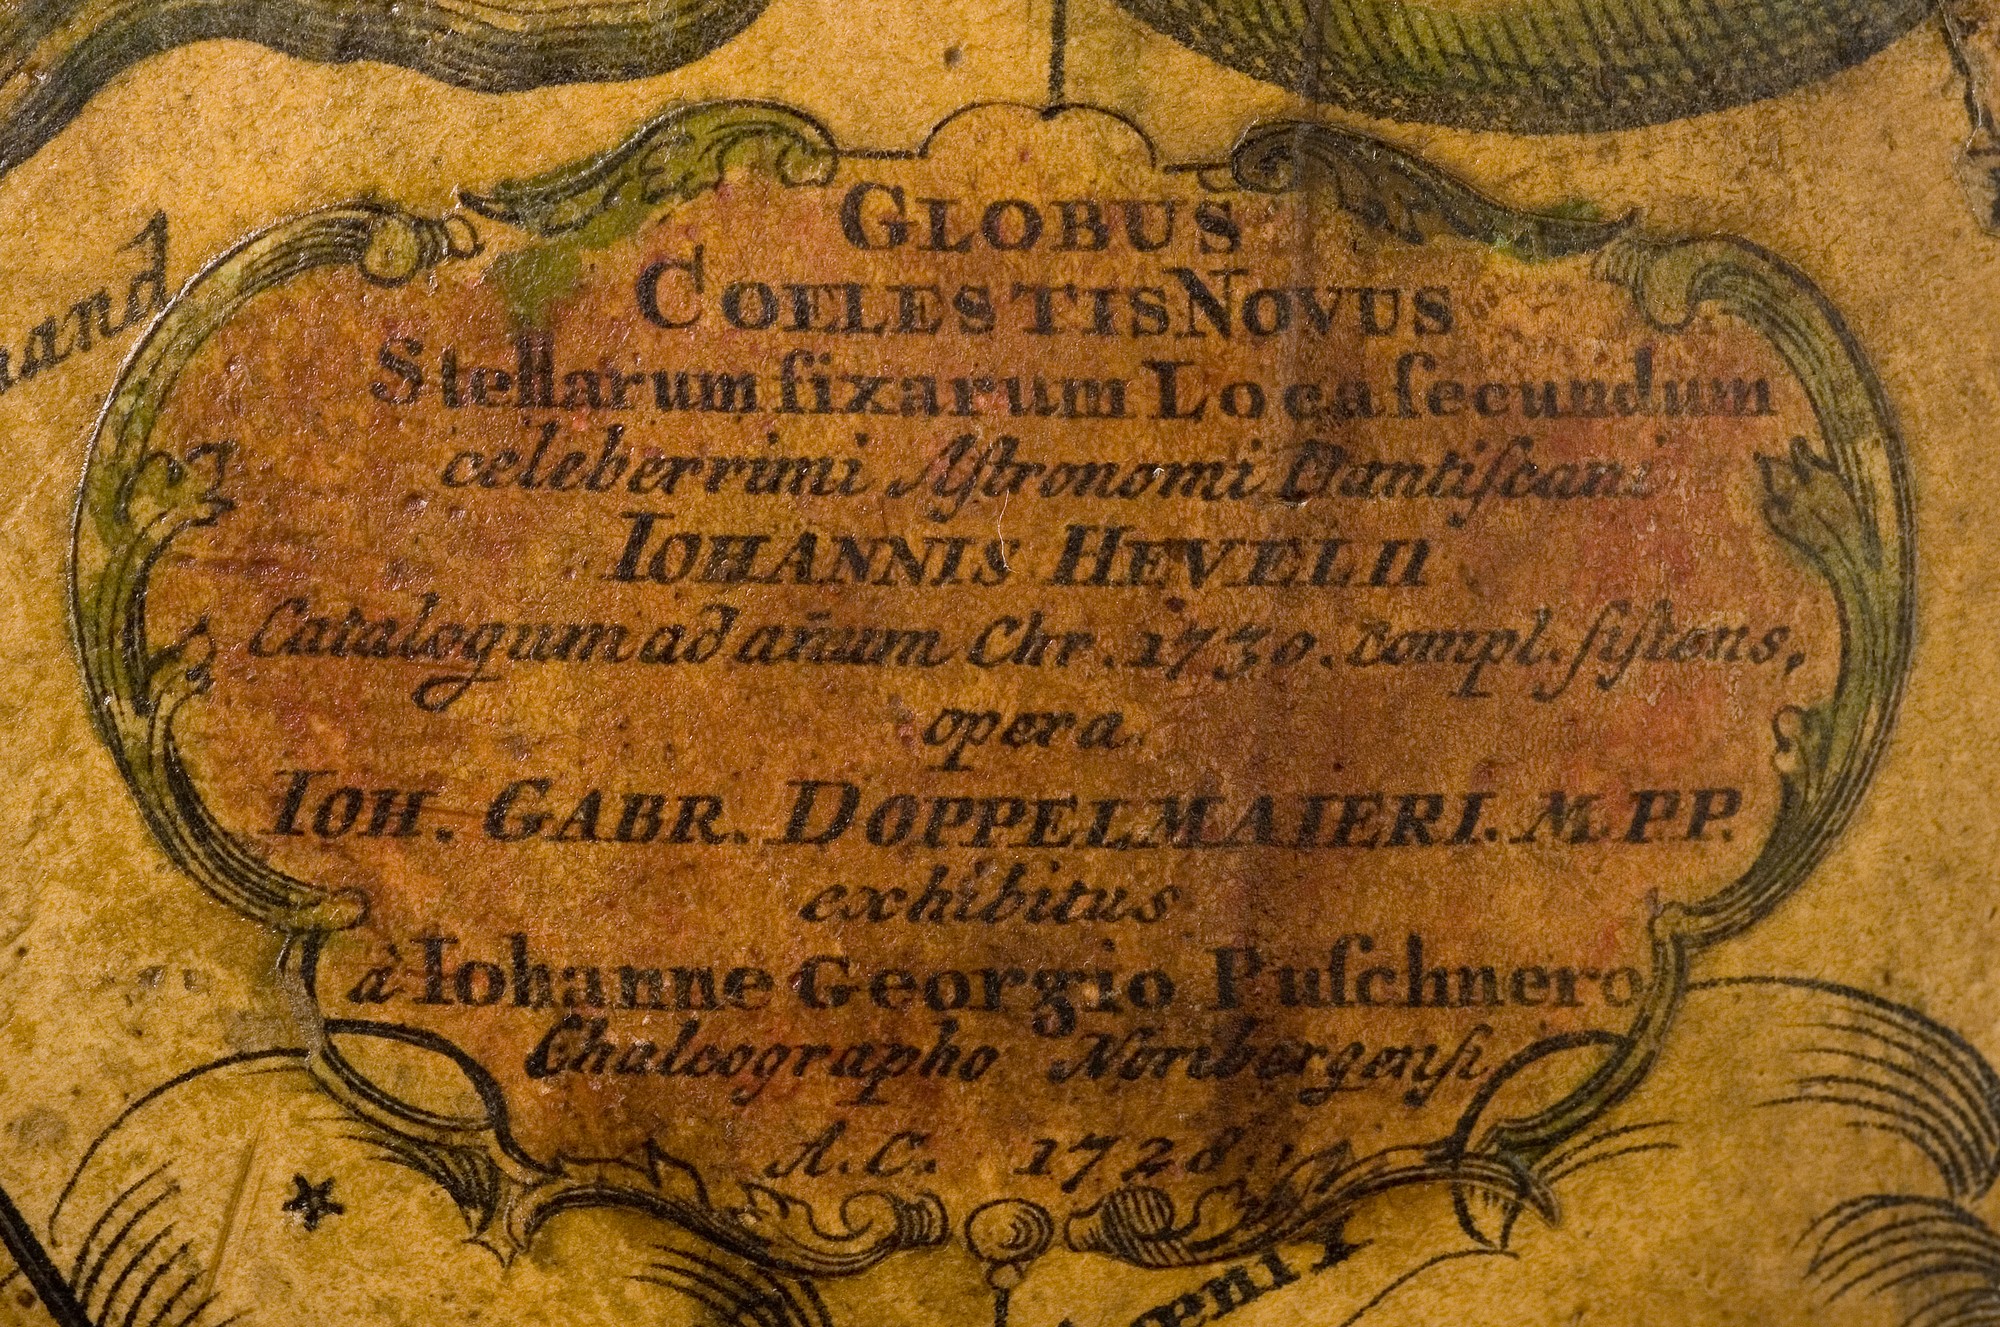 GLOBUS
COELESTIS NOVUS
Stellarum fixarum Loca ſecundum
celeberrimi Aſtronomi Dantiſcani
IOHANNIS HEVELII
Catalogum ad an̄um Chr. 1730. compl. ſiſtens,
opera
IOH. GABR. DOPPELMAIERI. M. P.P.
exhibitus
à Iohanne Georgio Puſchnero
Chalcographo Noribergenſi
A. C. 1728.